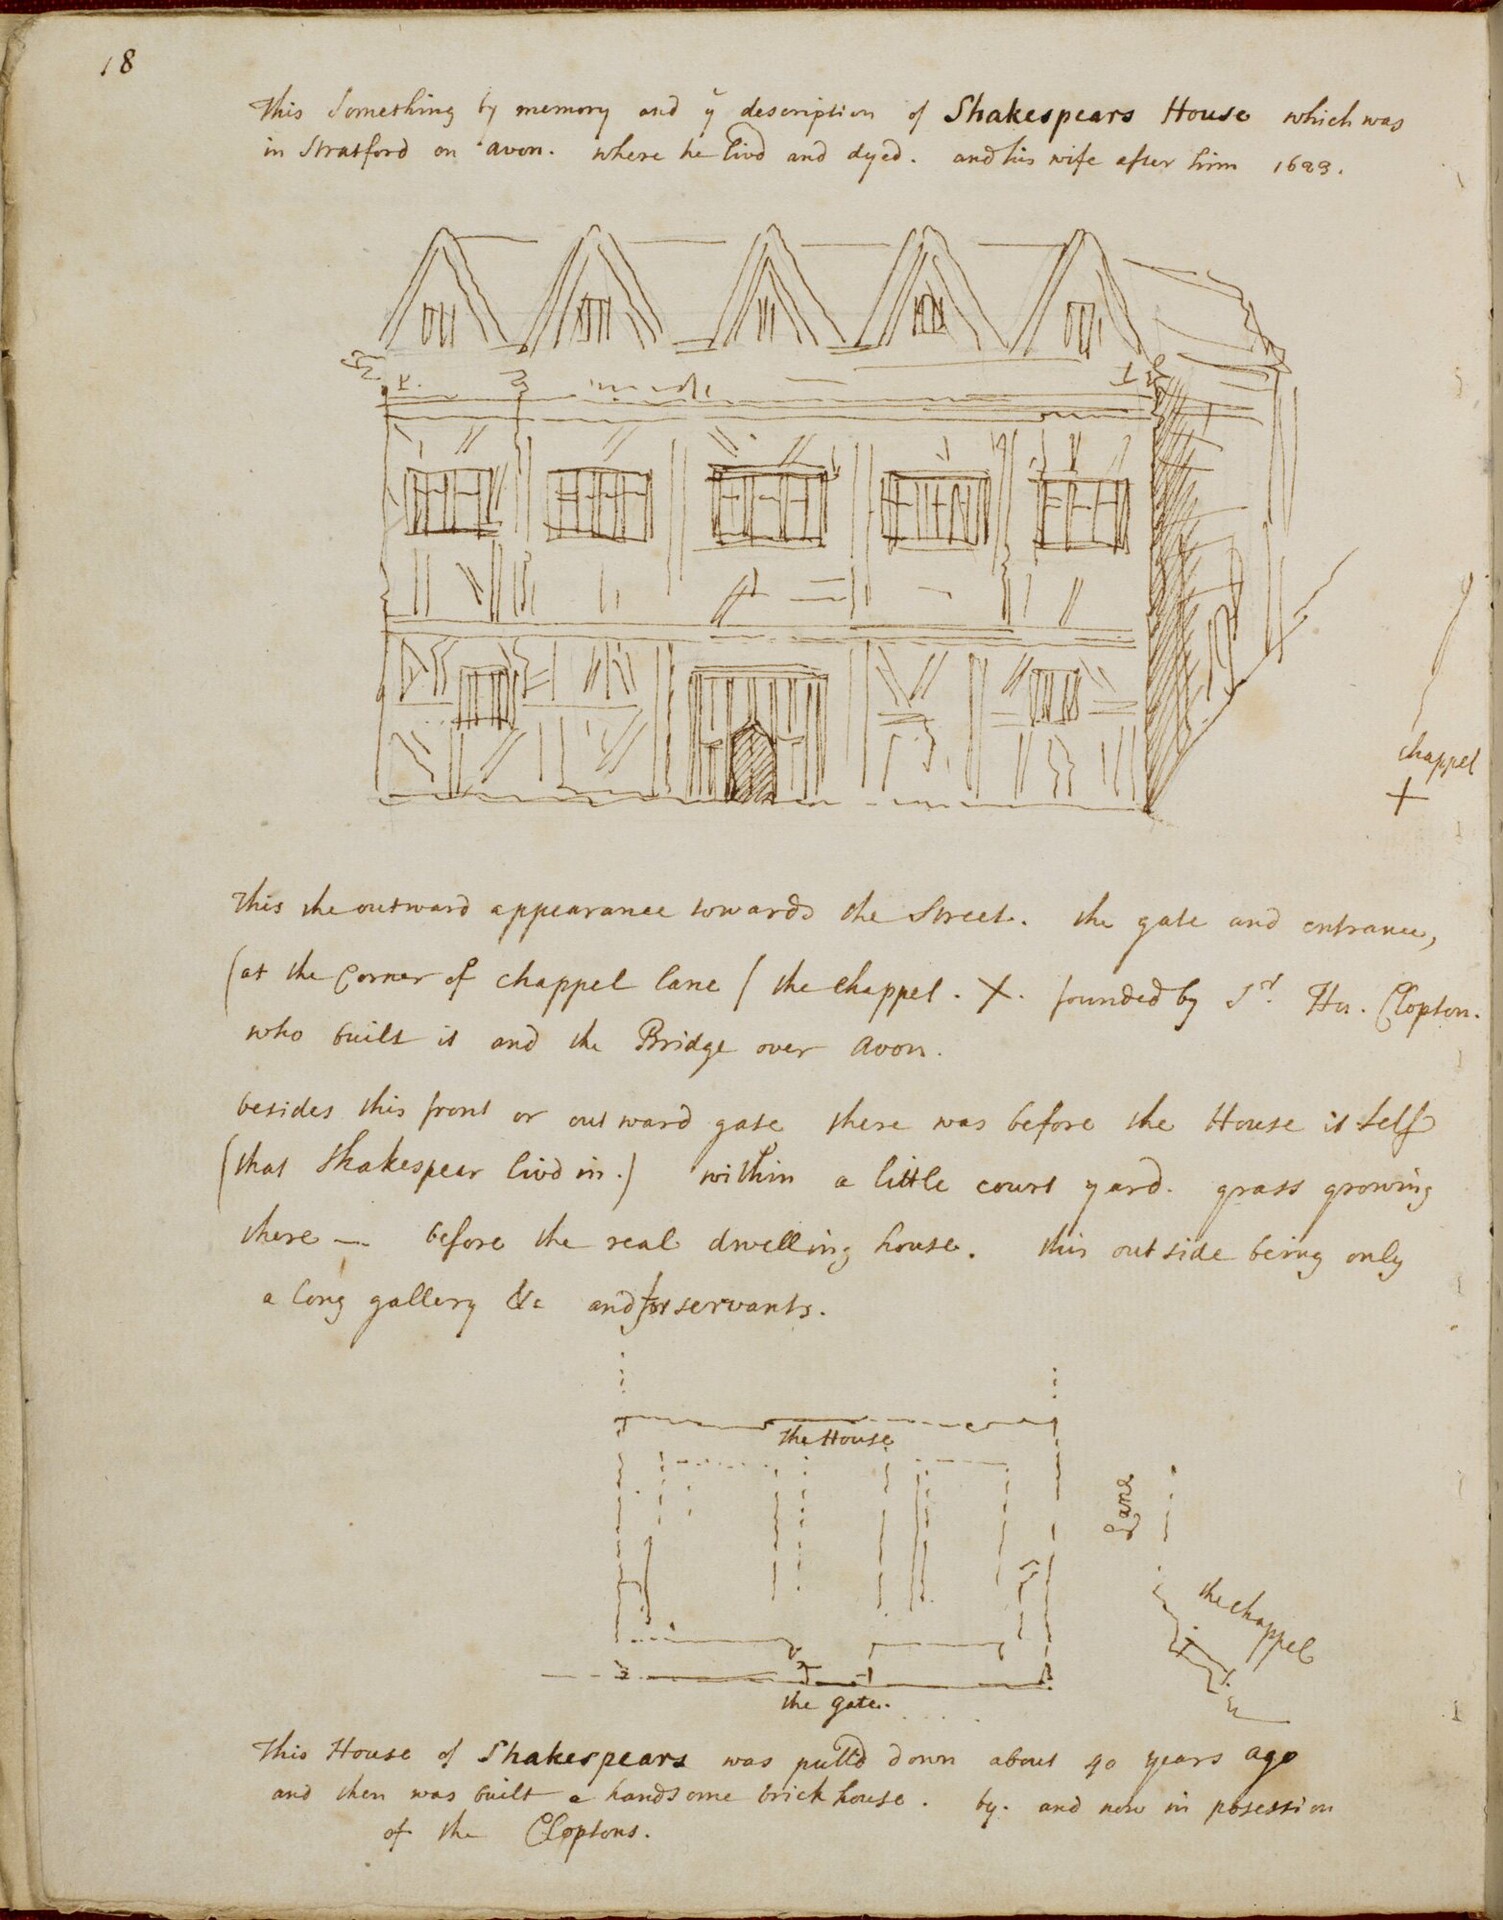 18
This Something by memory and yͤ description of Shakespears House which was
in Stratford on avon. where he livd and dyed. and his wife after him 1623.
chappel
+
This the outward appearance towards the Street. the gate and entrance,
(at the Corner of chappel lane / the chappel. X. founded by Sr. Hu. Clopton.
who built it and the Bridge over Avon.
besides this front or outward gate there was before the House it self
(that Shakespear livd in.) within a little court yard. grass growing
there — before the real dwelling house. this outside being only
a long gallery &c and for servants.
the House
Lane
the chappel
the gate.
This House of Shakespears was pulld down about 40 years ago
and then was built a handsome brick house. by. and now in posession
of the Cloptons.